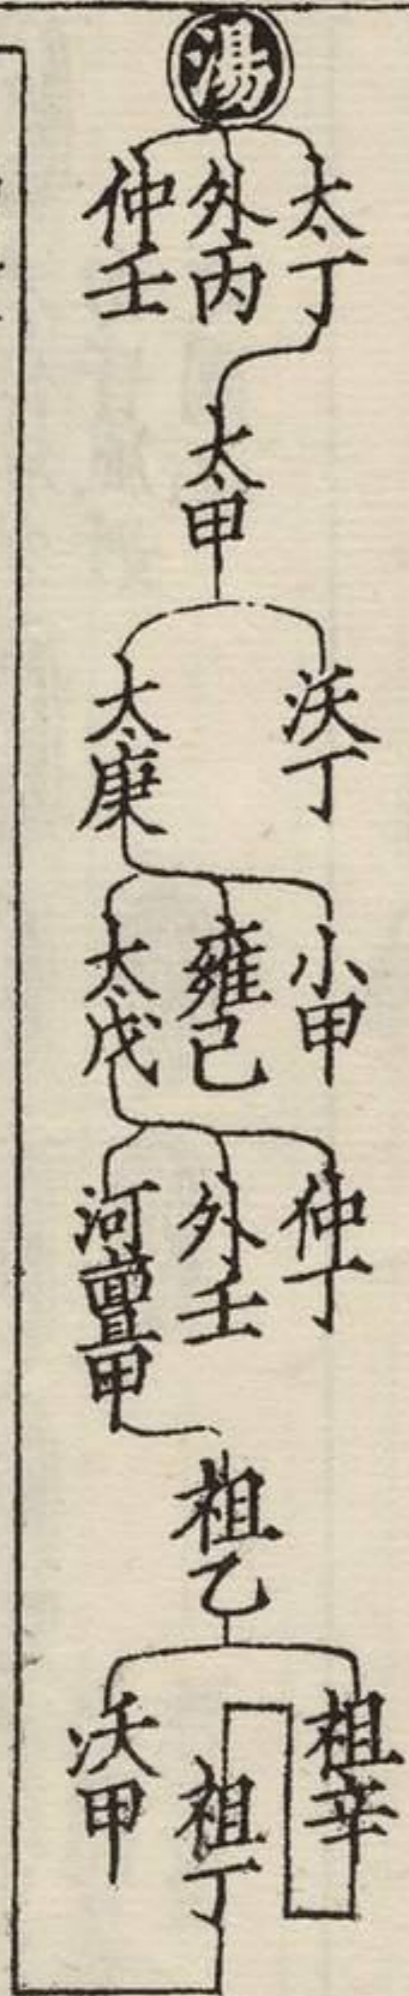 湯
太丁
外丙
仲壬
太甲
沃丁
太庚
小甲
雍己
太戊
仲丁
外壬
河亶甲
祖乙
祖辛
祖丁
沃甲